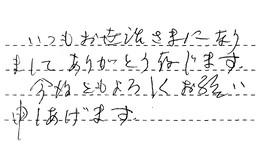 いつもお世話さまになり
ましてありがとう存じます.
今後ともよろしくお願い
申しあげます.